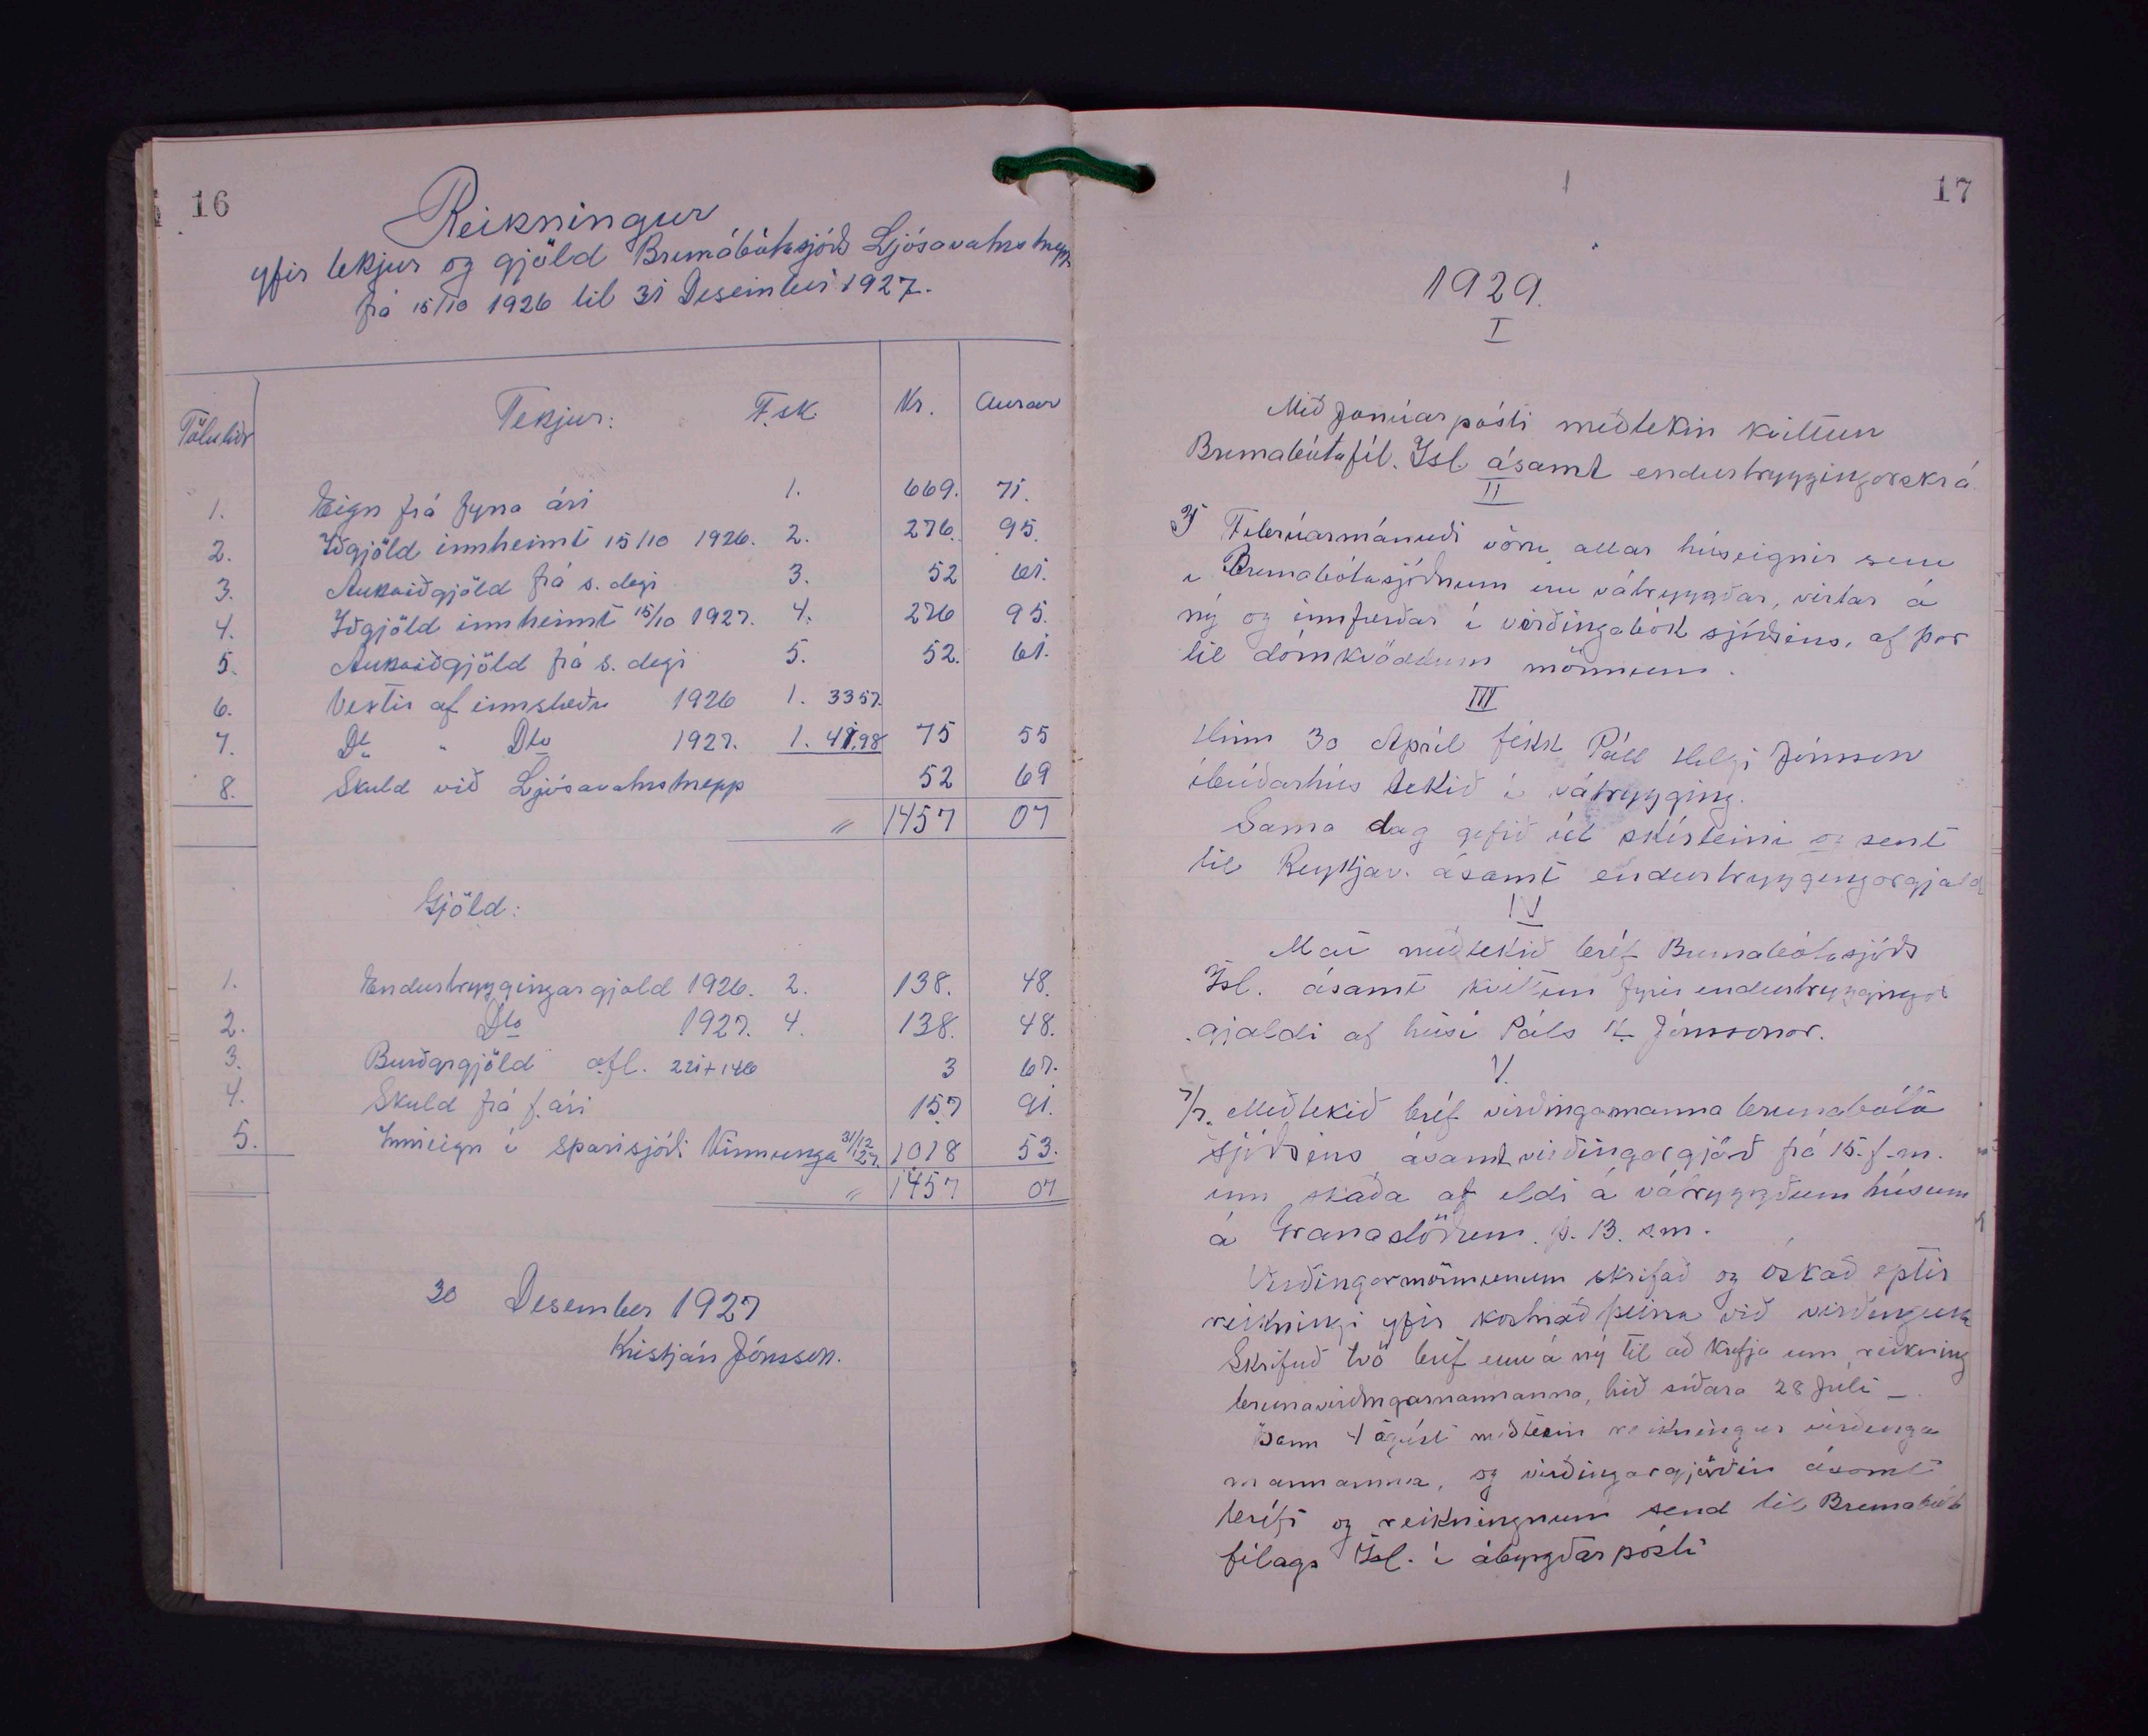 16
Reikningur
yfir tekjur og gjöld Brunábótasjóðs Ljósavatnshrepps
frá 15/10 1926 til 31 Desember 1927.
Töluliðr Tekjur: F.sk. Kr. Aurar
1. Eign frá fyrra ári 1. 669. 71.
2. Iðgjöld innheimt 15/10 1926. 2. 276. 95.
3. Aukaiðgjöld frá s. degi 3. 52 61.
4. Iðgjöld innheimt 15/10 1927. 4. 276 95.
5. Aukaiðgjöld frá s. degi 5. 52. 61.
6. Vextir af innstæðu 1926 1. 3357.
7. Do " Dto 1927. 1. 41,98 75 55
8. Skuld við Ljósavatnshrepp 52 69
" 1457 07
Gjöld:
1. Endurtryggingargjald 1926. 2. 138. 48.
2. Dto 1927. 4. 138. 48.
3. Burðargjöld afl. 221+146 3 67.
4. Skuld frá f. ári 157 91.
5. Inneign í Sparisjóði Kinnunga 31/12 27. 1018 53.
" 1457 07
30 Desember 1927
Kristján Jónsson.
17
1929.
I
Með Janúarpósti meðtekin kvittun
Brunabótafél. Ísl ásamt endurtryggingarskrá
II
Í Febrúarmánuði vóru allar húseignir sem
í Brunabótasjóðnum eru vátryggðar, virtar á
ný og innfærðar í virðingabók sjóðsins, af þar
til dómkvöddum mönnum.
III
Hinn 30 Apríl fékk Páll Helgi Jónsson
íbúðarhús tekið í vátrygging.
Sama dag gefið út skírteini og sent
til Reykjav. ásamt endurtryggingargjald
IV
Maí meðtekið bréf Brunabótasjóðs
Ísl. ásamt kvittun fyrir endurtryggingar
gjaldi af húsi Páls H. Jónssonar.
V.
7/7. Meðtekið bréf virðingamanna brunabóta
sjóðsins ásamt virðingargjörð frá 15. f.m.
um skaða af eldi á vátryggðum húsum
á Granastöðum. þ. 13. s.m.
Virðingarmönnunum skrifað og óskað eptir
reikningi yfir kostnað þeirra við virðinguna
Skrifuð tvö bréf enn á ný til að krefja um reikning
brunavirðingarmannanna, hið síðara 28 Júlí –
Þann 4 ágúst meðtekin reikningur virðinga
mannanna, og virðingargjörðin ásamt
bréfi og reikningnum send til Brunabóta
félags Ísl. í ábyrgðarpósti